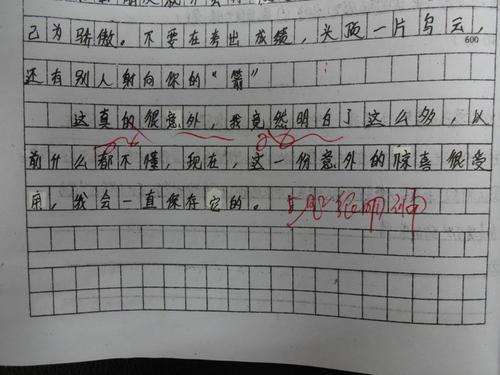 己为骄傲。不要在考出成绩，头顶一片乌云，
600
还有别人射向你的“箭”
这真的很意外，我竟然明白了这么多，以
前什么都不懂，现在，这一份意外的惊喜很受
用，我会一直保存它的。